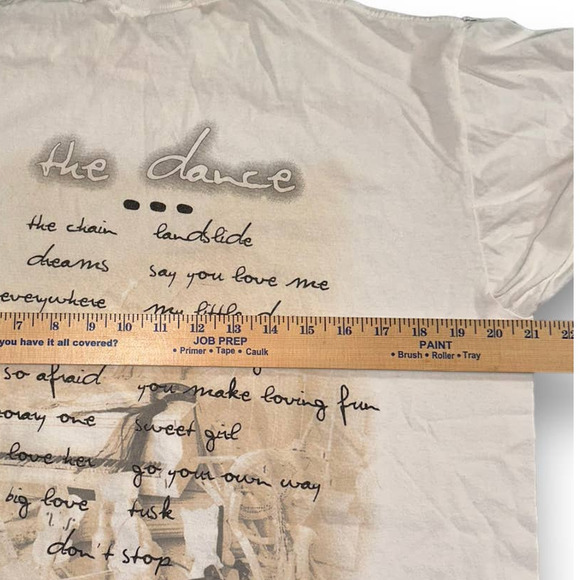 the dance
...
the chain landslide
dreams say you love me
everywhere my little
7 8 9 10 11 12 13 14 15 16 17 18 19 20 21 22
you have it all covered? JOB PREP PAINT
• Primer • Tape • Caulk • Brush • Roller • Tray
so afraid you make loving fun
one sweet girl
love her go your own way
big love tusk
don't stop